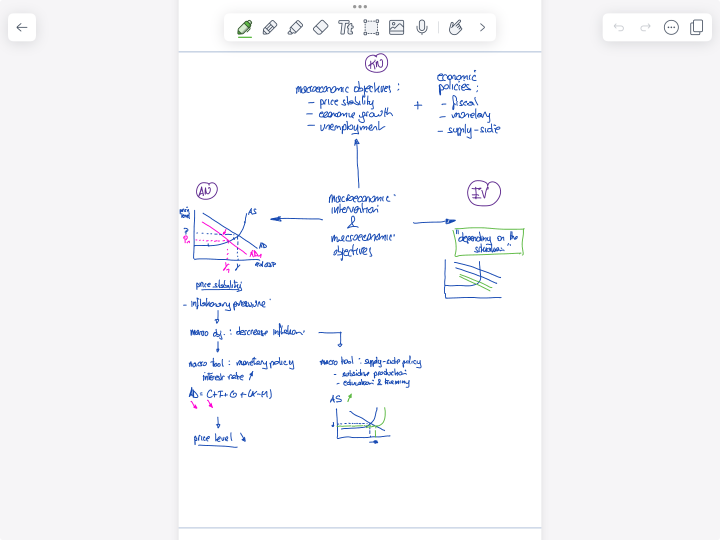 KN
macroeconomic objectives :
- price stability
- economic growth
- unemployment
+
economic
policies :
- fiscal
- monetary
- supply-side
AN
AS
AD
AD₁
real GDP
macroeconomic
intervention
&
macroeconomic
objectives
EV
"depending on the
situation"
price stability
- inflationary pressure
macro obj. : descrease inflation
macro tool : monetary policy
interest rate ↗
AD = C+I+G+(X-M)
price level ↘
macro tool : supply-side policy
- subsidise production
- education & training
AS ↗